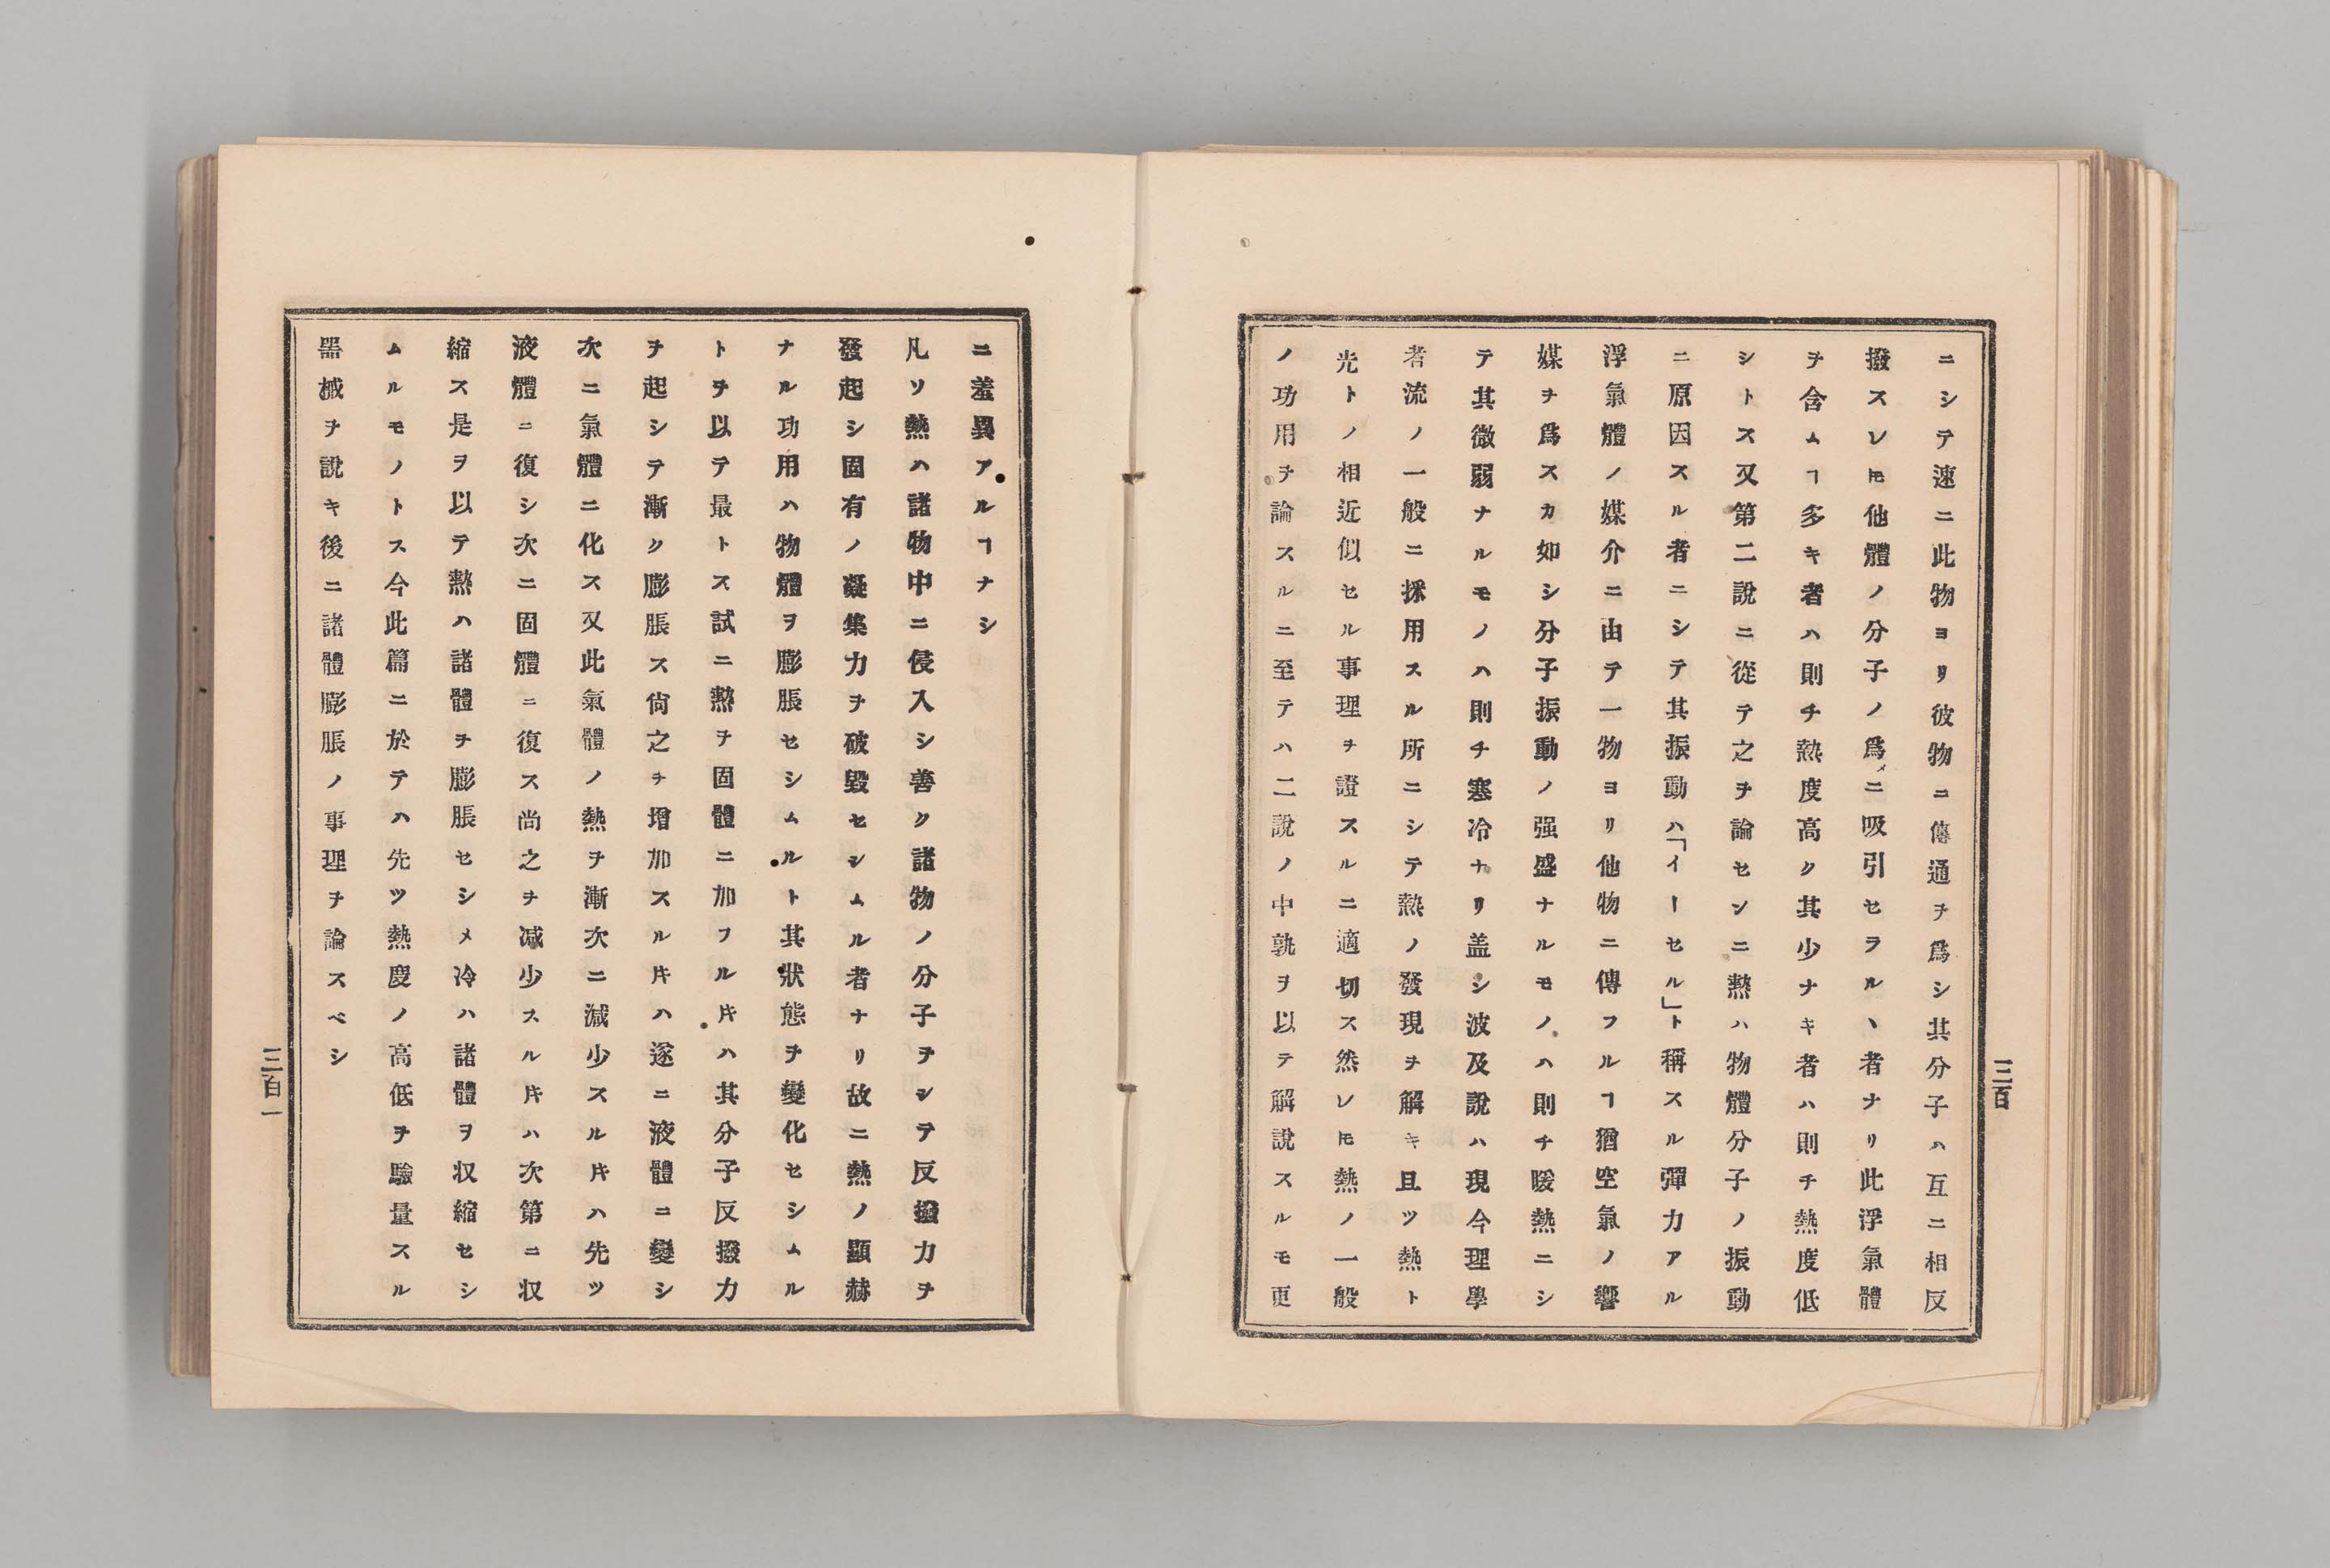 ニシテ速ニ此物ヨリ彼物ニ傳通ヲ爲シ其分子ハ互ニ相反
撥スレㇳモ他體ノ分子ノ爲メニ吸引セラルヽ者ナリ此浮氣體
ヲ含ムヿ多キ者ハ則チ熱度高ク其少ナキ者ハ則チ熱度低
シトス又第二說ニ從テ之ヲ論センニ熱ハ物體分子ノ振動
ニ原因スル者ニシテ其振動ハ「イーセル」ト稱スル彈力アル
浮氣體ノ媒介ニ由テ一物ヨリ他物ニ傳フルヿ猶空氣ノ響
媒ヲ爲スカ如シ分子振動ノ强盛ナルモノハ則チ暖熱ニシ
テ其微弱ナルモノハ則チ寒冷ナリ盖シ波及說ハ現今理學
者流ノ一般ニ採用スル所ニシテ熱ノ發現ヲ解キ且ツ熱ト
光トノ相近似セル事理ヲ證スルニ適切ス然レㇳモ熱ノ一般
ノ功用ヲ論スルニ至テハ二說ノ中孰ヲ以テ解說スルモ更
三百
ニ差異アルヿナシ
凡ソ熱ハ諸物中ニ侵入シ善ク諸物ノ分子ヲシテ反撥力ヲ
發起シ固有ノ凝集力ヲ破毀セシムル者ナリ故ニ熱ノ顯赫
ナル功用ハ物體ヲ膨脹セシムルト其狀態ヲ變化セシムル
トヲ以テ最トス試ニ熱ヲ固體ニ加フル𪜈ハ其分子反撥力
ヲ起シテ漸ク膨脹ス尙之ヲ增加スル𪜈ハ遂ニ液體ニ變シ
次ニ氣體ニ化ス又此氣體ノ熱ヲ漸次ニ減少スル𪜈ハ先ツ
液體ニ復シ次ニ固體ニ復ス尙之ヲ減少スル𪜈ハ次第ニ収
縮ス是ヲ以テ熱ハ諸體ヲ膨脹セシメ冷ハ諸體ヲ収縮セシ
ムルモノトス今此篇ニ於テハ先ツ熱度ノ高低ヲ驗量スル
器械ヲ說キ後ニ諸體膨脹ノ事理ヲ論スベシ
三百一